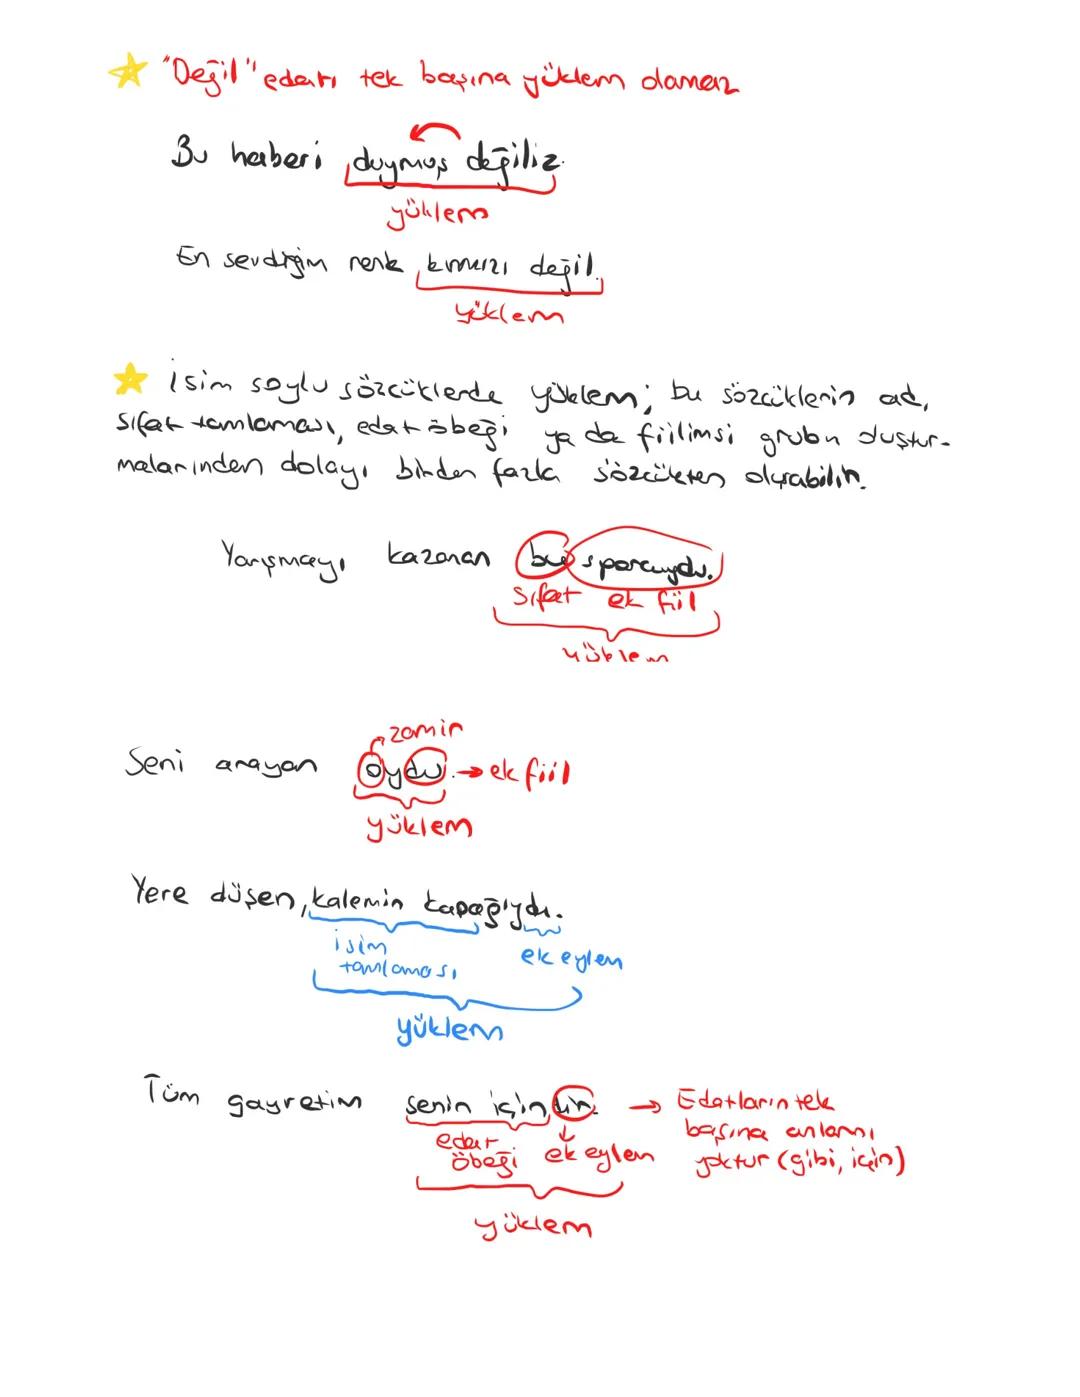 "Değil" edatı tek başına yüklem olamaz
Bu haberi duymuş değiliz.
yüklem
En sevdiğim renk kırmızı değil.
yüklem
İsim soylu sözcüklerde yüklem; bu sözcüklerin ad,
sıfat tamlaması, edat öbeği ya da fiilimsi grubu oluştur-
malarından dolayı birden fazla sözcükten oluşabilir.
Yarışmayı kazanan bu sporcuydu.
sıfat ek fiil
yüklem
zamir
Seni arayan oydu. → ek fiil
yüklem
Yere düşen, kalemin kapağıydı.
isim tamlaması ek eylem
yüklem
Tüm gayretim senin içindir. → Edatların tek
başına anlamı
yoktur (gibi, için)
edat öbeği ek eylem
yüklem